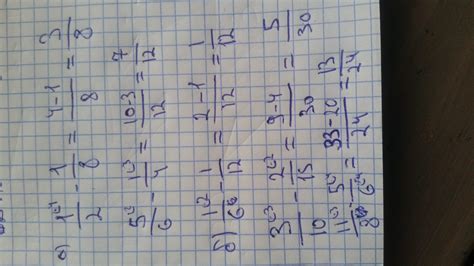 а) 1⁽⁴⁾/2 - 1/8 = 4-1/8 = 3/8
5⁽²⁾/6 - 1⁽³⁾/4 = 10-3/12 = 7/12
б) 1⁽²⁾/6 - 1/12 = 2-1/12 = 1/12
3⁽³⁾/10 - 2⁽²⁾/15 = 9-4/30 = 5/30
11⁽³⁾/8 - 5⁽⁴⁾/6 = 33-20/24 = 13/24